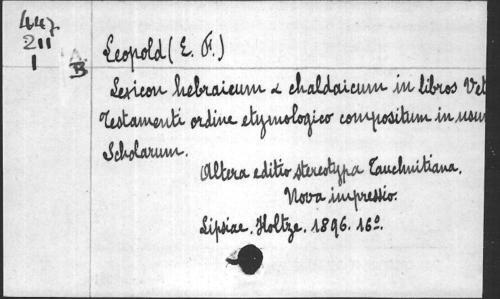 447.
211
1
B
Leopold (E. F.)
Lexicon hebraicum & chaldaicum in libros Vet
Testamenti ordine etymologico compositum in usum
Scholarum.
Altera editio stereotypa Tauchnitiana.
Nova impressio.
Lipsiae. Holtze. 1896. 16º.